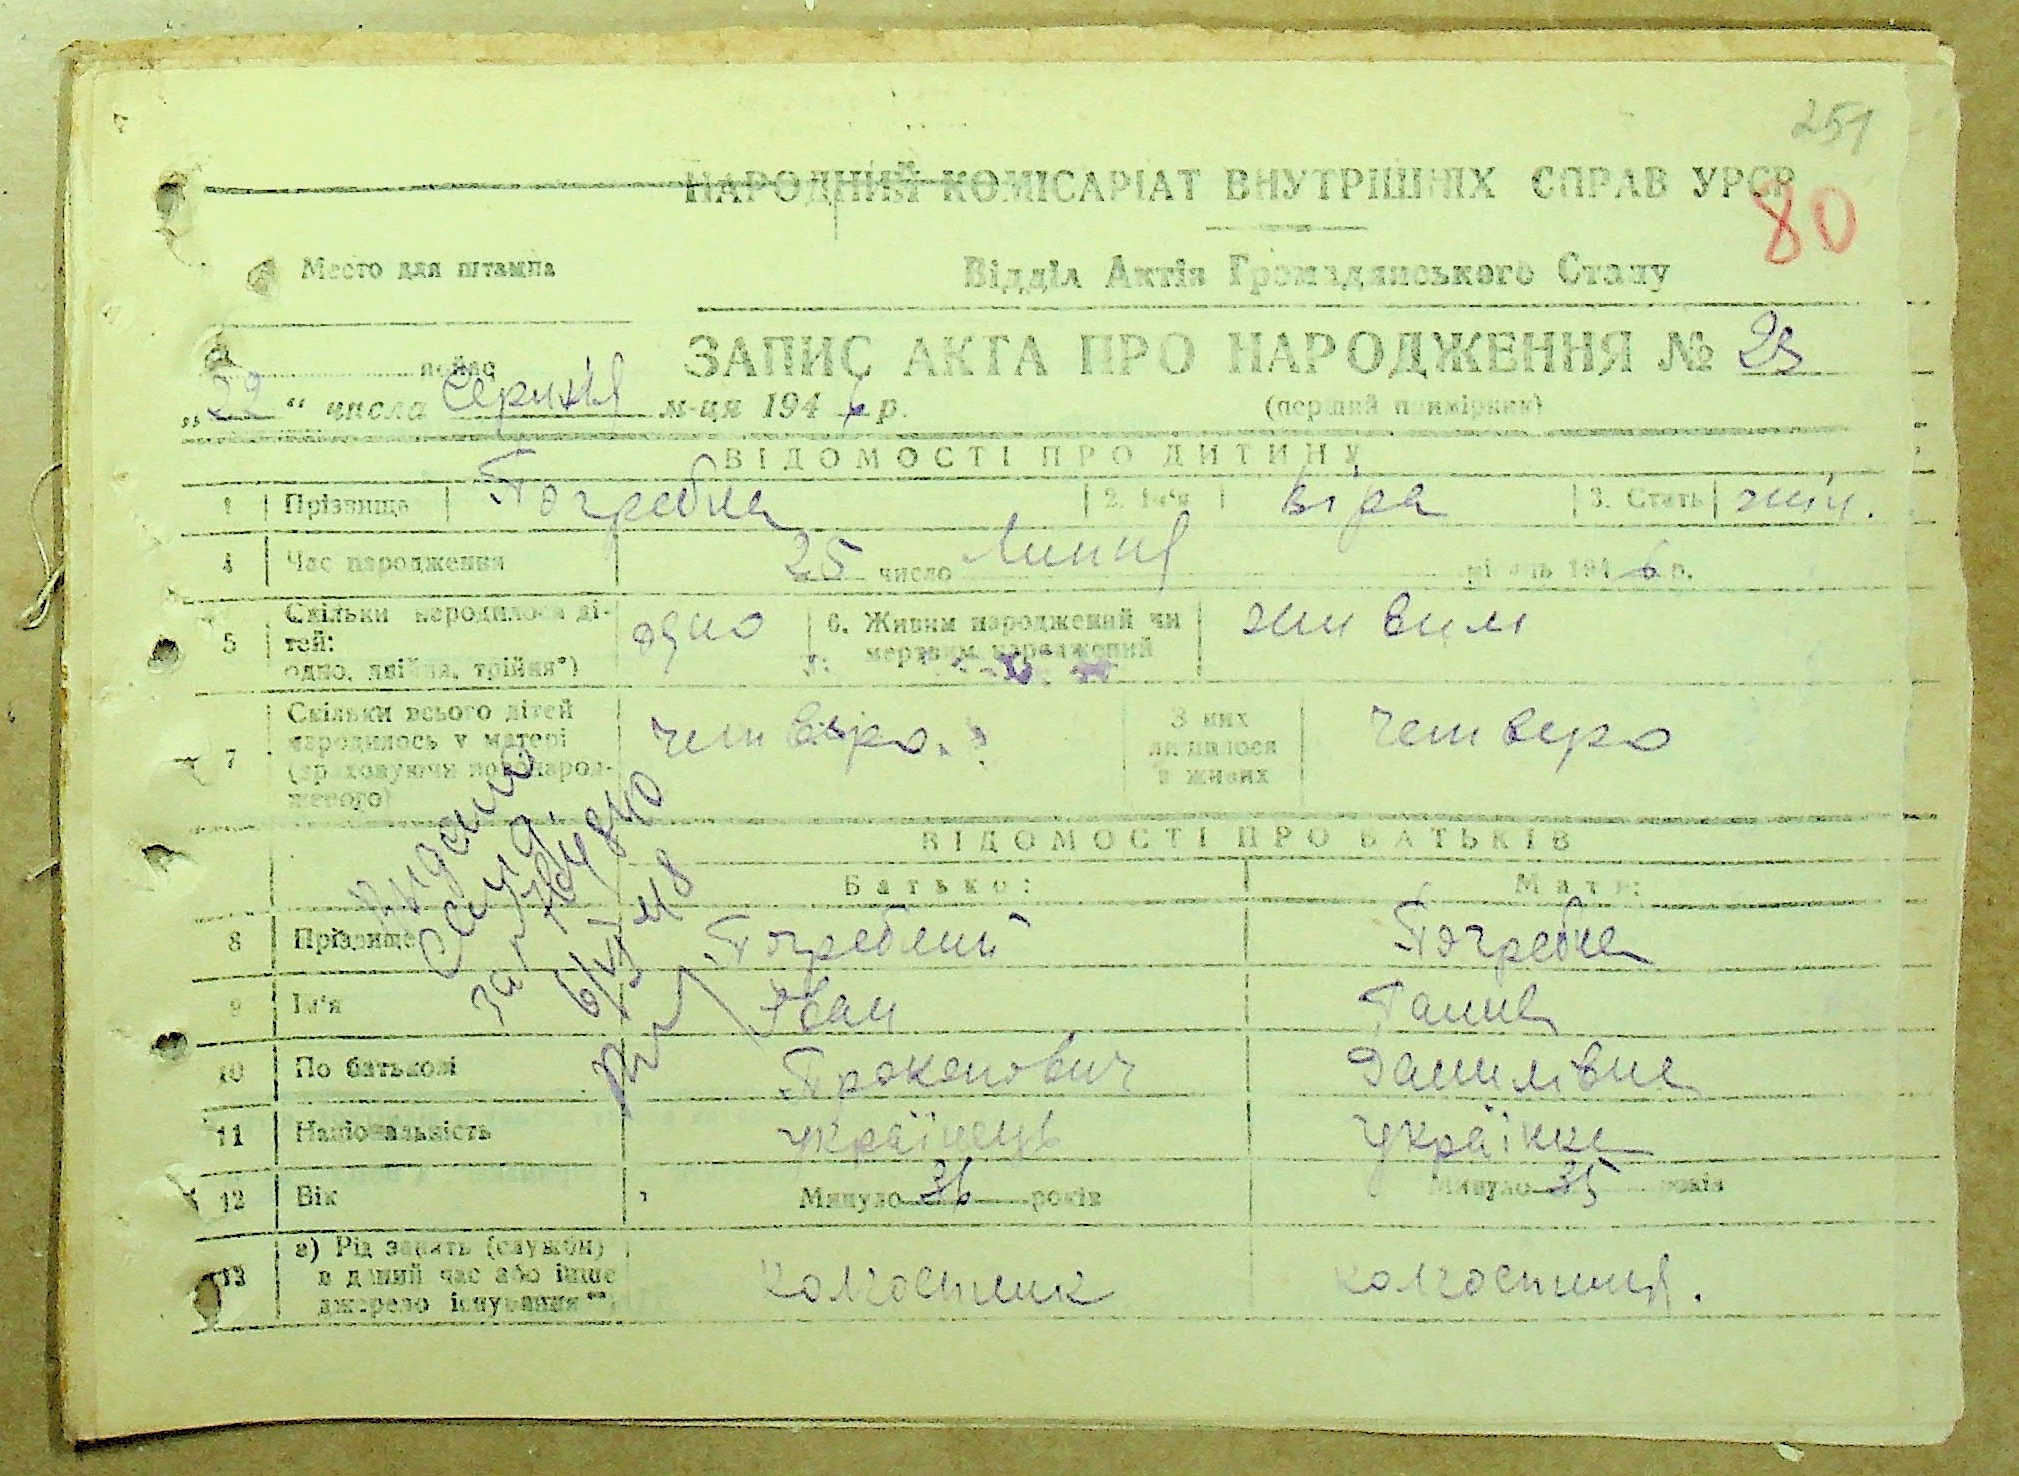 251
НАРОДНИЙ КОМІСАРІАТ ВНУТРІШНІХ СПРАВ УРСР
80
Место для штампа
Відділ Актів Громадянського Стану
ЗАПИС АКТА ПРО НАРОДЖЕННЯ №
„22“ числа Серпня м-ця 1946 р.
(перший примірник)
ВІДОМОСТІ ПРО ДИТИНУ
1 Прізвище Погребна 2. Ім'я Віра 3. Стать жін.
4 Час народження 25 число Липня 1946 р.
5 Скільки народилося ді-
тей:
одно, двійня, трійня*) одно
6. Живим народжений чи
мертвим народжений живим
7 Скільки всього дітей
народилось у матері
(враховуючи новонарод-
женого) четверо.
З них
лишилося
в живих четверо
видано
ВІДОМОСТІ ПРО БАТЬКІВ
Батько: Мати:
8 Прізвище Погребний Погребна
9 Ім'я Іван Ганна
10 По батькові Прокопович Данилівна
11 Національність українець українка
12 Вік Минуло 36 років Минуло 35 років
13 а) Рід занять (служби)
в даний час або інше
джерело існування**) колгоспник колгоспниця.